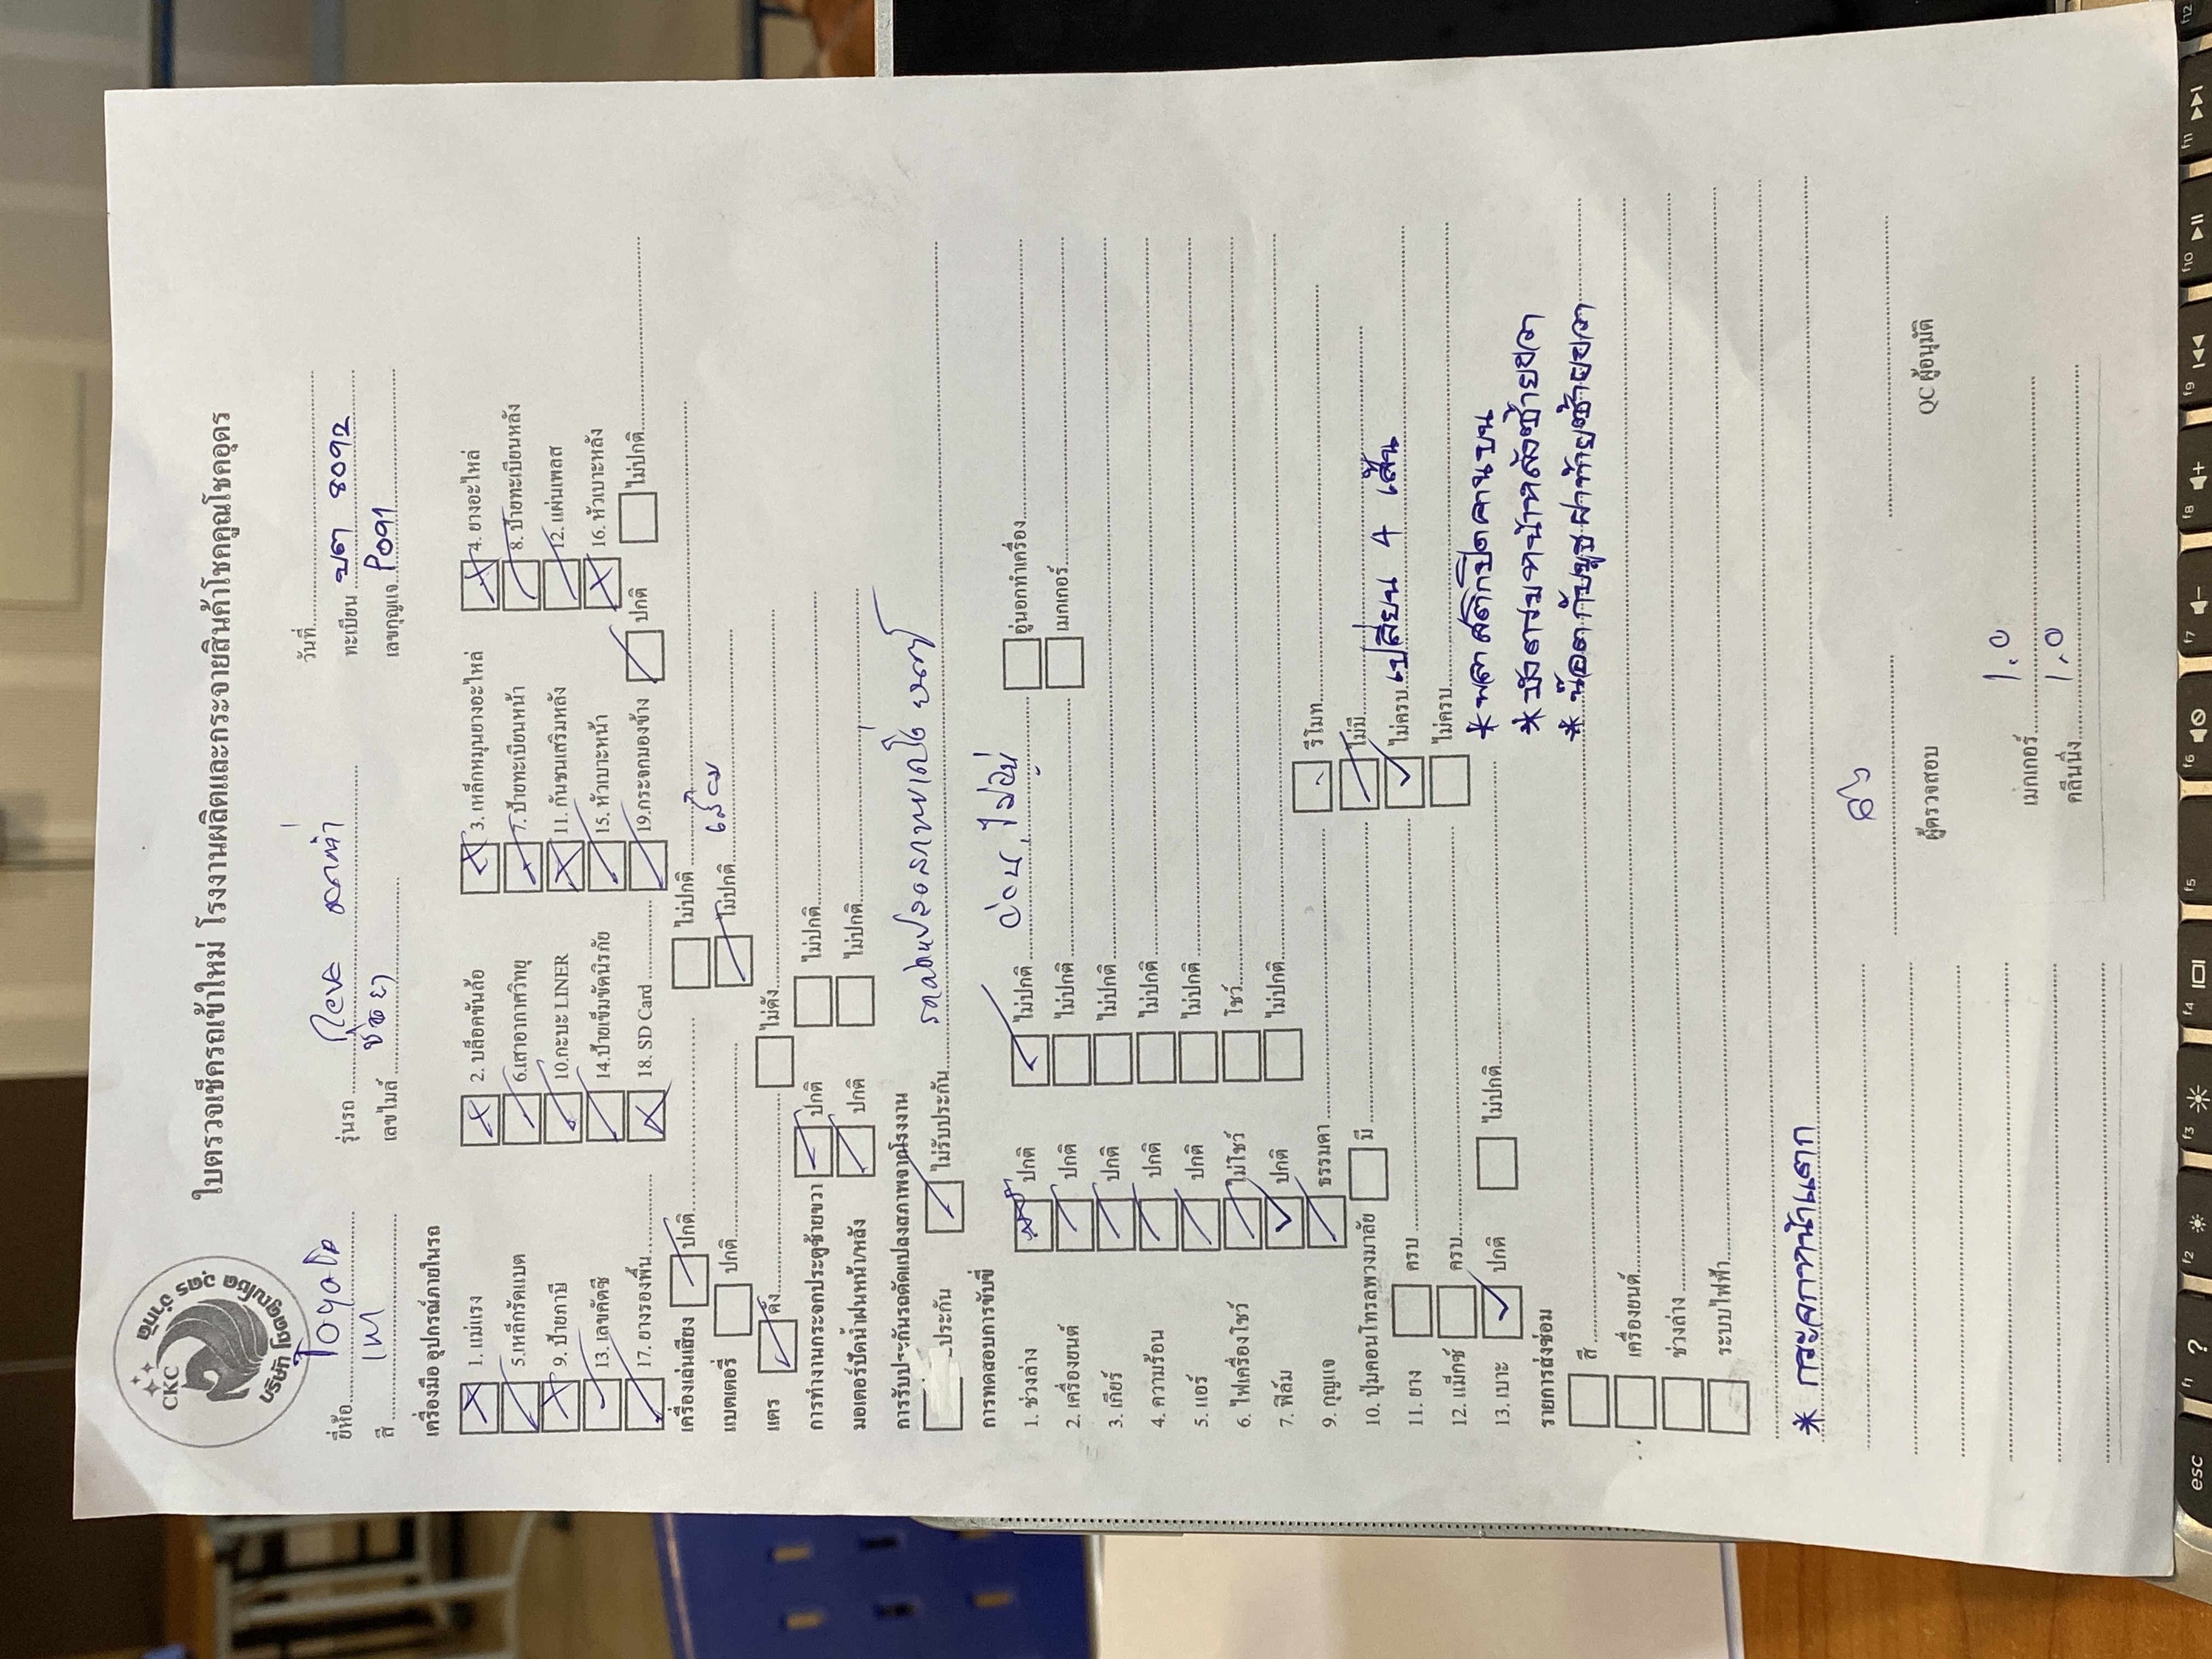 ใบตรวจเช็ครถเข้าใหม่ โรงงานผลิตและกระจายสินค้าโชคคูณโชคอุดร
CKC
บริษัท โชคคูณโชค อุดร จำกัด
วันที่
ยี่ห้อ รุ่นรถ ทะเบียน บต 8092
สี เทา เลขไมล์ เลขกุญแจ P091
เครื่องมือ อุปกรณ์ภายในรถ
1. แม่แรง 2. บล็อคขันล้อ 3. เหล็กหมุนยางอะไหล่ 4. ยางอะไหล่
5.เหล็กกรัดแบต 6.เสาอากาศวิทยุ 7. ป้ายทะเบียนหน้า 8. ป้ายทะเบียนหลัง
9. ป้ายภาษี 10.กะบะ LINER 11. กันชนเสริมหลัง 12. แผ่นเพลส
13. เลขคัตซี 14.ป้ายเข็มขัดนิรภัย 15. หัวเบาะหน้า 16. หัวเบาะหลัง
17. ยางรองพื้น 18. SD Card 19.กระจกมองข้าง ปกติ ไม่ปกติ
เครื่องเล่นเสียง ปกติ ไม่ปกติ
แบตเตอรี่ ปกติ ไม่ปกติ เสื่อม
แตร ดัง ไม่ดัง
การทำงานกระจกประตูซ้ายขวา ปกติ ไม่ปกติ
มอเตอร์ปัดน้ำฝนหน้า/หลัง ปกติ ไม่ปกติ
การรับประกันรถดัดแปลงสภาพจากโรงงาน
ประกัน ไม่รับประกัน
การทดสอบการขับขี่
1. ช่วงล่าง ปกติ ไม่ปกติ อู่นอกทำเครื่อง
2. เครื่องยนต์ ปกติ ไม่ปกติ เมกเกอร์
3. เกียร์ ปกติ ไม่ปกติ
4. ความร้อน ปกติ ไม่ปกติ
5. แอร์ ปกติ ไม่ปกติ
6. ไฟเครื่องโชว์ ไม่โชว์ โชว์
7. ฟิล์ม ปกติ ไม่ปกติ
9. กุญแจ ธรรมดา รีโมท
10. ปุ่มคอนโทรลพวงมาลัย มี ไม่มี
11. ยาง ครบ ไม่ครบ เปลี่ยน 4 เส้น
12. แม็กซ์ ครบ ไม่ครบ
13. เบาะ ปกติ ไม่ปกติ
* พลาสติกปิดคานบน
รายการส่งซ่อม
* บังตรมหน้าหลังซ้ายขวา
สี * น๊อตกับบูชฝาท้ายซ้ายขวา
เครื่องยนต์
ช่วงล่าง
ระบบไฟฟ้า
* กระจกหน้าแตก
ผู้ตรวจสอบ QC ผู้อนุมัติ
เมกเกอร์ 1.0
คลีนนิ่ง 1.0
esc f1 f2 f3 f4 f5 f6 f7 f8 f9 f10 f11 f12